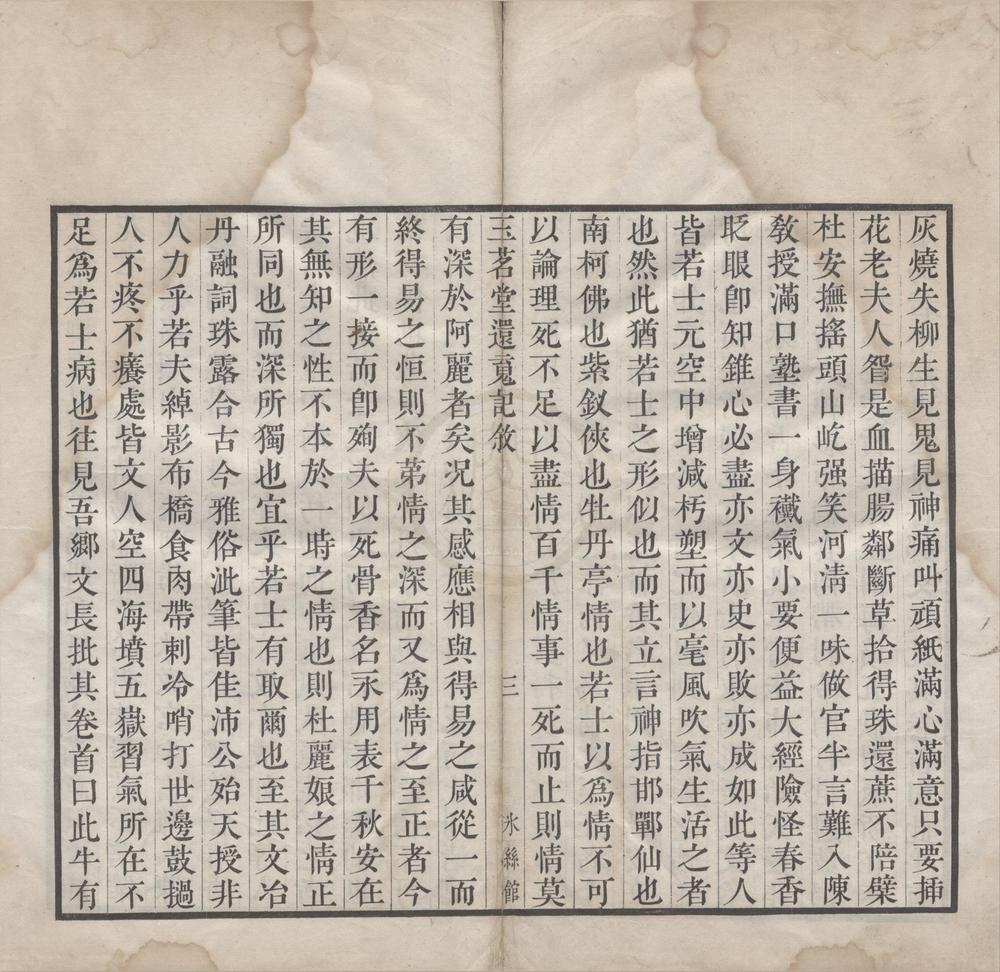 灰燒失柳生見鬼見神痛叫頑紙滿心滿意只要揷
花老夫人眢是血描腸鄰斷草拾得珠還蔗不陪檗
杜安撫搖頭山屹强笑河淸一味做官半言難入陳
敎授滿口塾書一身襶氣小要便益大經險怪春香
眨眼卽知錐心必盡亦文亦史亦敗亦成如此等人
皆若士元空中增減朽塑而以毫風吹氣生活之者
也然此猶若士之形似也而其立言神指邯鄲仙也
南柯佛也紫釵俠也牡丹亭情也若士以爲情不可
以論理死不足以盡情百千情事一死而止則情莫
玉茗堂還䰟記敘
三
氷絲館
有深於阿麗者矣况其感應相與得易之咸從一而
終得易之恒則不第情之深而又爲情之至正者今
有形一接而卽殉夫以死骨香名永用表千秋安在
其無知之性不本於一時之情也則杜麗娘之情正
所同也而深所獨也宜乎若士有取爾也至其文冶
丹融詞珠露合古今雅俗泚筆皆佳沛公殆天授非
人力乎若夫綽影布橋食肉帶刺冷哨打世邊鼓撾
人不疼不癢處皆文人空四海墳五嶽習氣所在不
足爲若士病也往見吾鄉文長批其卷首曰此牛有